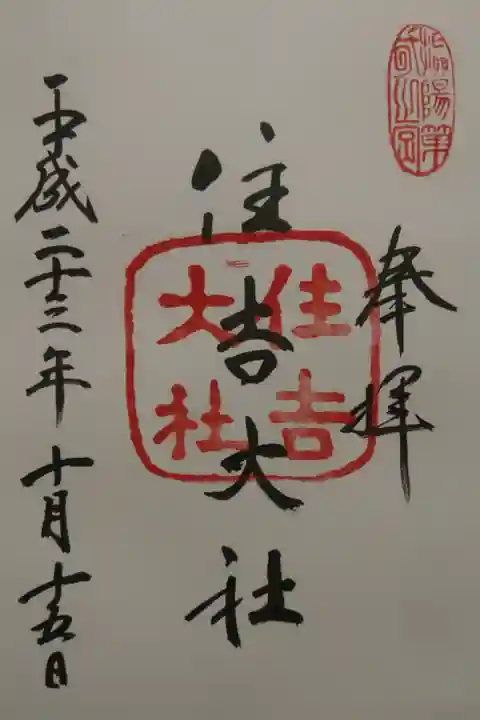 陽第
之宮
奉拝
住吉大社
住吉
大社
平成二十三年十月十五日